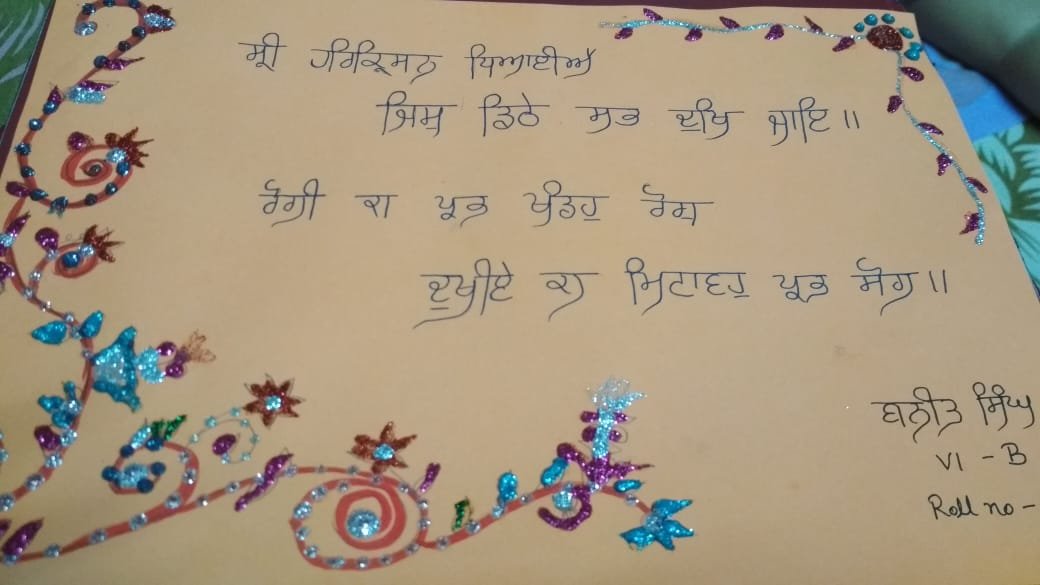 ਸ੍ਰੀ ਹਰਿਕ੍ਰਿਸਨ ਧਿਆਈਐ
ਜਿਸੁ ਡਿਠੇ ਸਭ ਦੁਖਿ ਜਾਇ॥
ਰੋਗੀ ਕਾ ਪ੍ਰਭ ਖੰਡਹੁ ਰੋਗ
ਦੁਖੀਏ ਕਾ ਮਿਟਾਵਹੁ ਪ੍ਰਭ ਸੋਗ॥
ਬਨੀਤ ਸਿੰਘ
VI - B
Roll no -